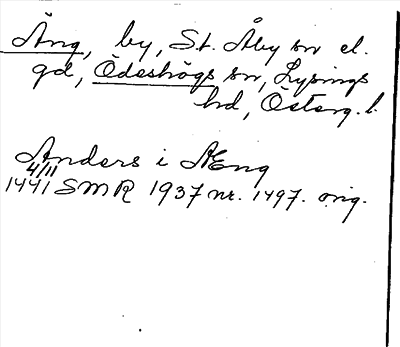 Äng, by, St. Åby sn el.
gd, Ödeshögs sn, Lysings
hd, Österg. l.
Anders i Æng
4/11
1441 SMR 1937 nr. 1497. orig.